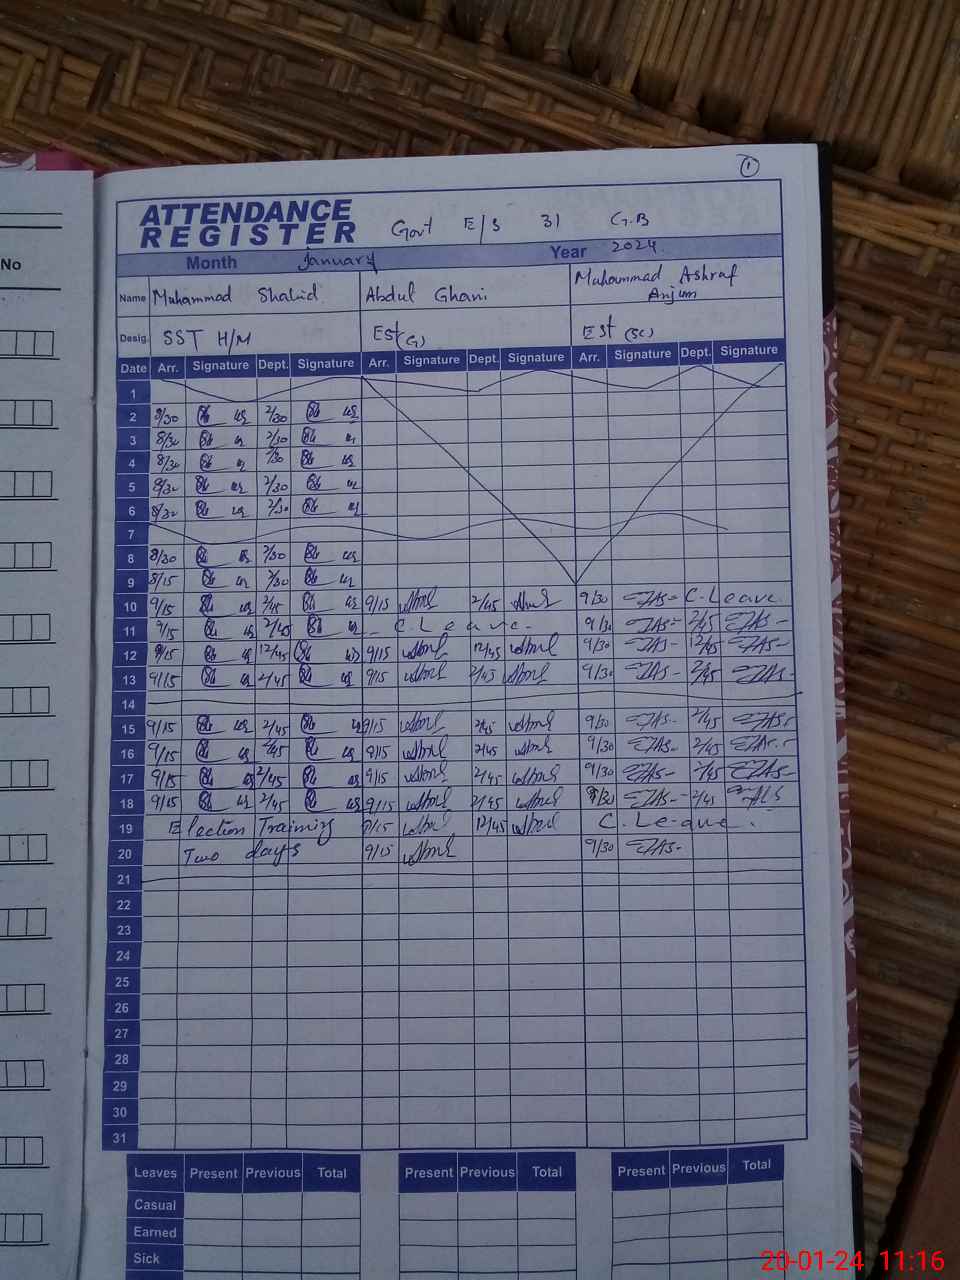 1
No
ATTENDANCE
REGISTER
Govt E/S 31 G.B
Month January Year 2024
Name Muhammad Shahid Abdul Ghani Muhammad Ashraf Anjum
Desig. SST H/M EST (G) EST (SC)
Date Arr. Signature Dept. Signature Arr. Signature Dept. Signature Arr. Signature Dept. Signature
1
2 8/30 2/30
3 8/30 2/30
4 8/30 2/30
5 8/30 2/30
6 8/30 2/30
7
8 8/30 2/30
9 8/15 2/30
10 9/15 2/45 9/15 2/45 9/30 C.Leave.
11 9/15 2/45 C.Leave. 9/30 2/45
12 9/15 12/45 9/15 12/45 9/30 12/45
13 9/15 2/45 9/15 2/45 9/30 2/45
14
15 9/15 2/45 9/15 2/45 9/30 2/45
16 9/15 2/45 9/15 2/45 9/30 2/45
17 9/15 2/45 9/15 2/45 9/30 2/45
18 9/15 2/45 9/15 2/45 9/30 2/45
19 Election Training 9/15 12/45 C.Leave.
20 Two days 9/15 9/30
21
22
23
24
25
26
27
28
29
30
31
Leaves Present Previous Total Present Previous Total Present Previous Total
Casual
Earned
Sick
20-01-24 11:16